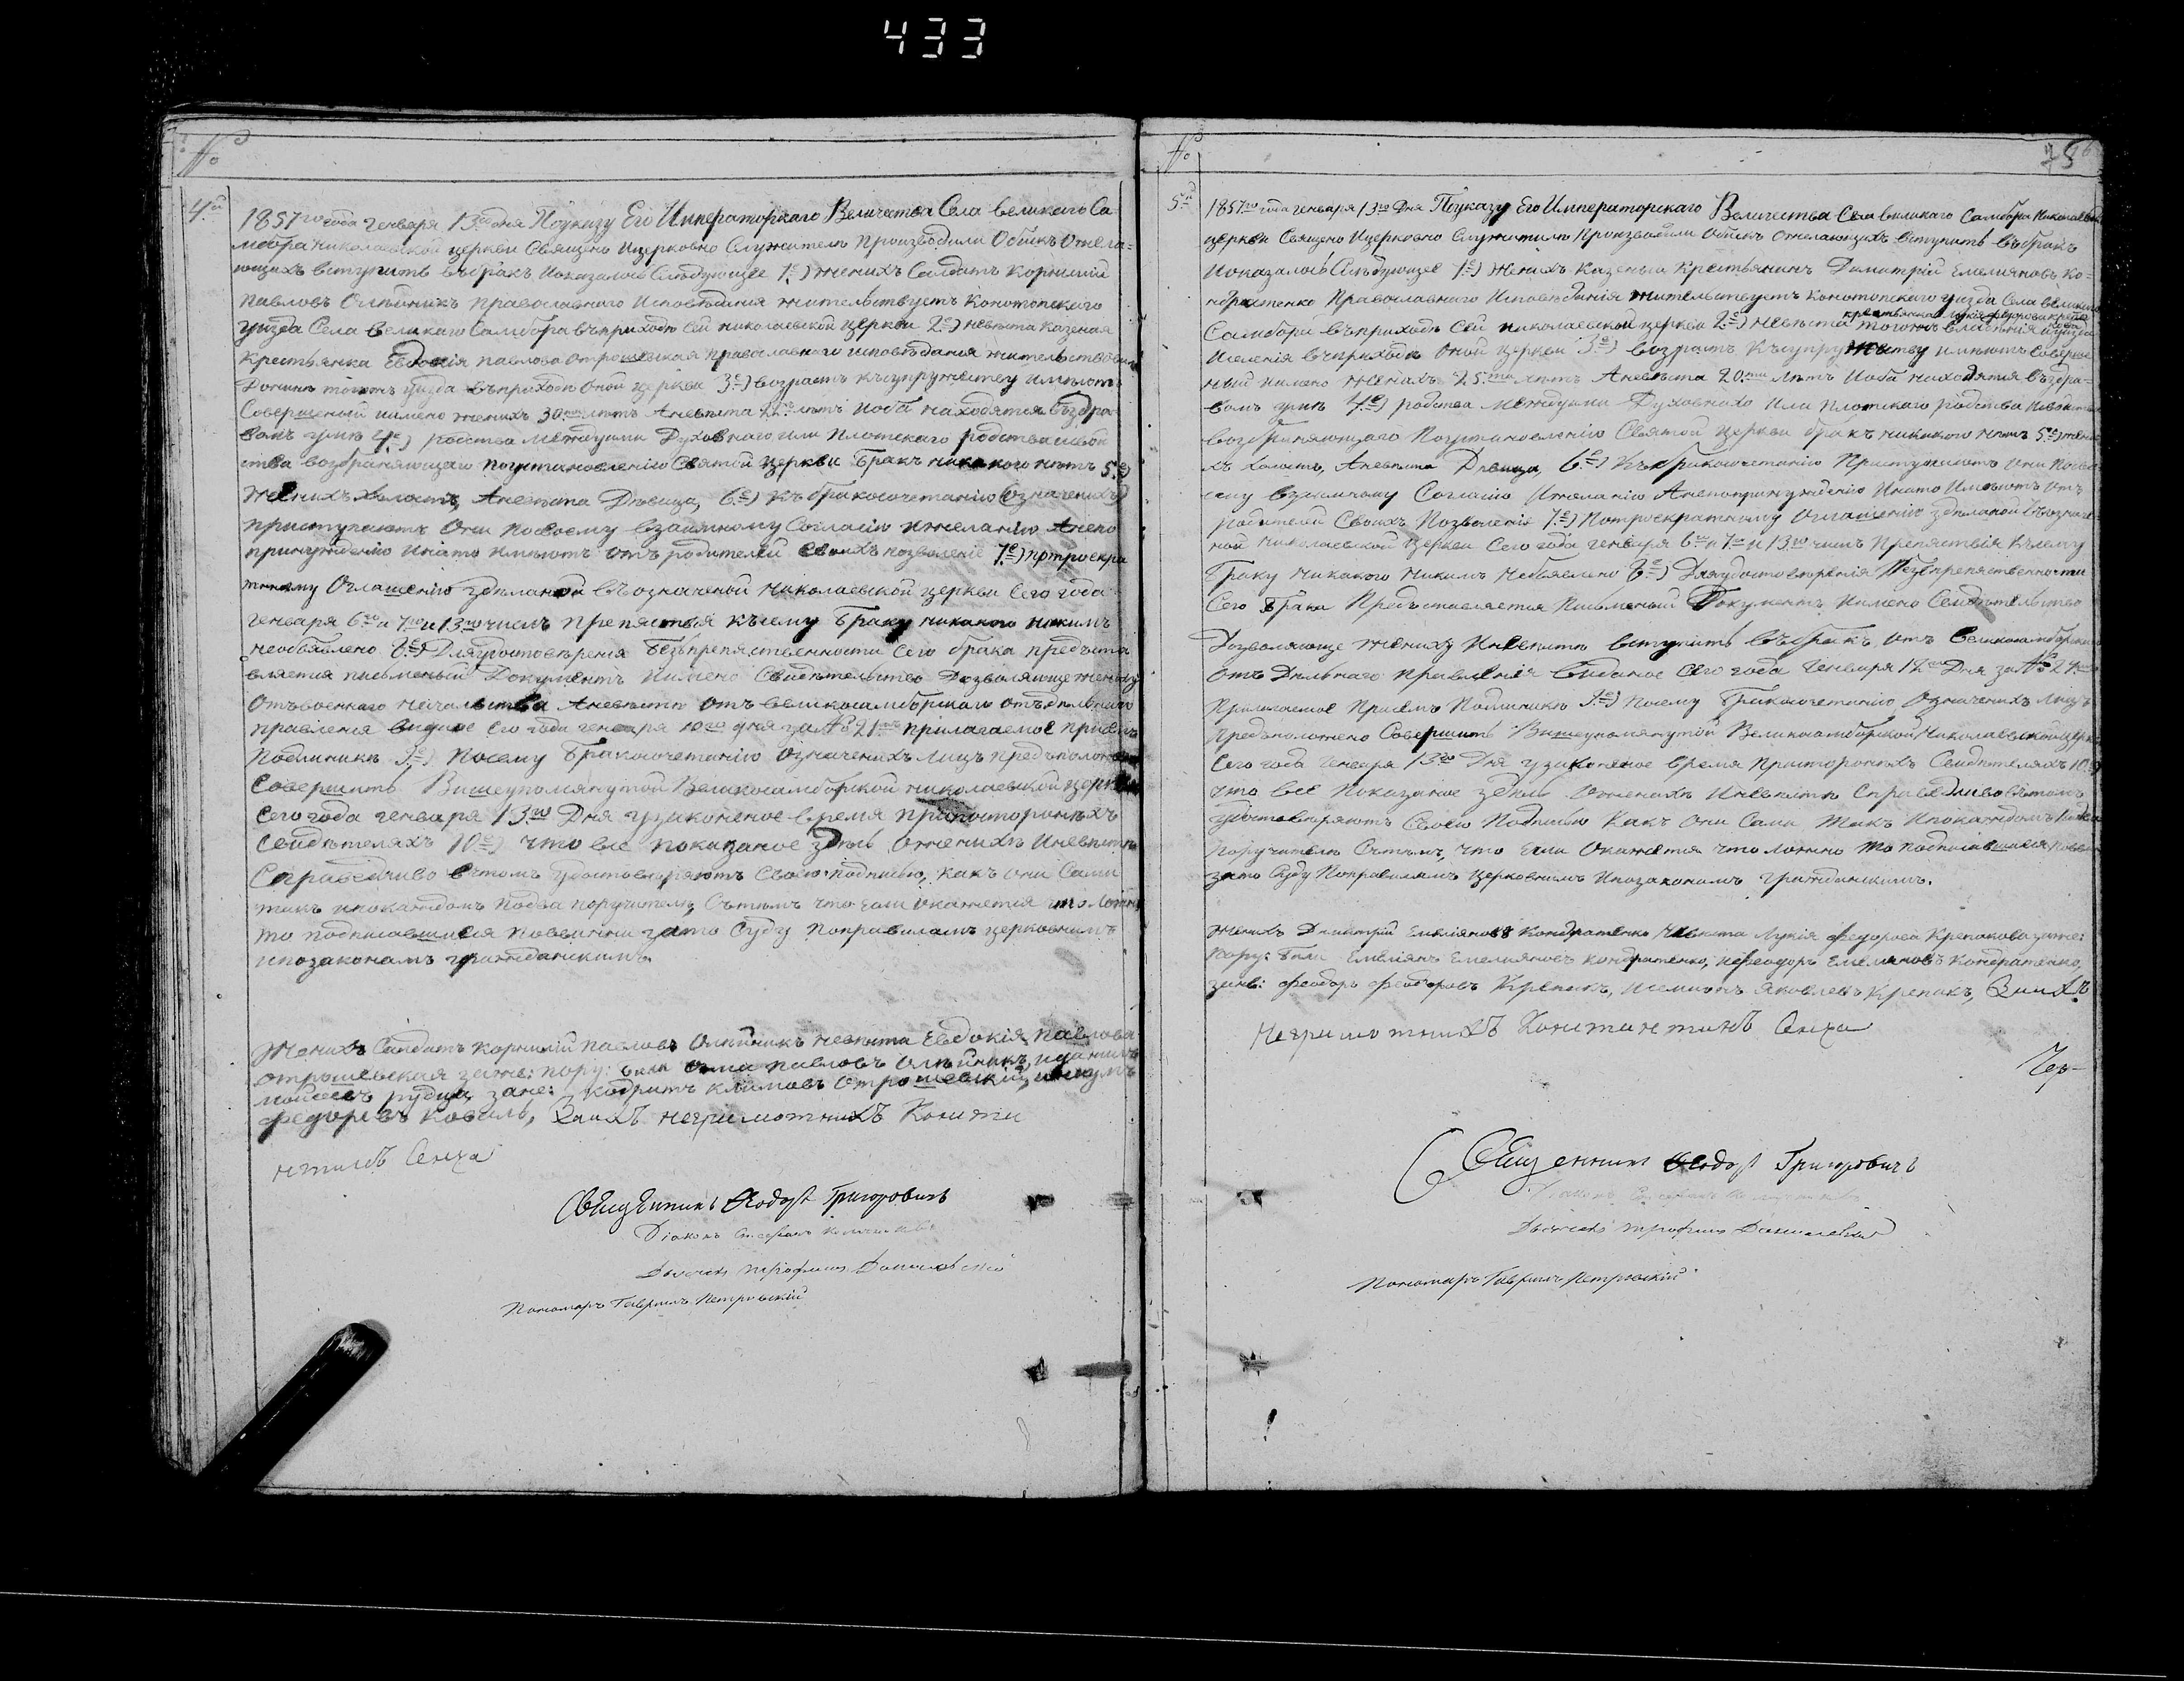 433
№
4й
1857го года Генваря 13го дня Поуказу Его Императорскаго Величества Села великаго Са
мбора николаевской церкви Священо Ицерковно Служители Производили Обыскъ Ожела=
ющихъ вступить въбракъ Иоказалось Следующее 1е) женихъ Салдатъ Корнилий
Павловъ Олейникъ православнаго Исповѣдания жительствуетъ Конотопскаго
уизда Села великаго Самбора въприходѣ сей николаевской церкви 2е) невѣста казеная
крестьянка Евдокія Павлова Отрошевская православнаго исповѣдания жительство
тогожъ уизда въприходѣ оной церкви 3е) возрастъ късупружеству имѣютъ
Совершеный имено женихъ 30 лѣтъ Аневѣста 22 лѣтъ иоба находятся въздра-
вомъ умѣ 4е) родства междуими Духовнаго или плотскаго родства исвой
ства возбраняющаго поустановлению Святой церкви Бракъ никакого нѣтъ 5е)
Женихъ холостъ, Аневѣста Дѣвица, 6е) къ бракосочетанію Означеныхъ
приступаютъ Они посвоему взаимному Согласию ижеланию Анепо
принуждению Инато имѣютъ отъ родителей своихъ позволение 7е) потроекра
тному Оглашению зделаной въозначеной николаевской церкви Сего года
Генваря 6го и 7го и 13го числъ препяствія късему Браку никакого никимъ
необявлено 8е) Дляудостовѣрения Безъпрепяственности Сего брака предъста
вляется писменый Документъ Имено Свидетельство Дозволяюще жениху
Отъвоеннаго начальства Аневѣстѣ отъ великосамборскаго отдельнаго
правления виданое Сего года генваря 10го дня за № 21 прилагаемое присемъ
Подлиникѣ 9е) Посему Бракосочетанию означеныхъ лицъ предположено
Совершить Вишеупомянутой Великосамборской николаевской церкви
Сего года Генваря 13го Дня узаконеное время припосторонныхъ
Свидѣтеляхъ 10е) что все показаное здесь оженихѣ Иневѣсти
Справедливо втомъ удостовѣряютъ Своею подписью, какъ они Сами
такъ инокаждомъ подва поручителя, Сътемъ что если окажется что ложно
то подписавшися повинни зато Суду поправиламъ церковнимъ
ипозаконамъ гражданскимъ.
Женихъ Салдатъ Корнилий Павловъ Олейникъ невѣста Евдокія Павлова
отрошевская заже: пору: были Фома павловъ Олейникъ, иданило
Мойсеевъ рудица, зане: Кодратъ климовъ Отрошевский, инаумъ
федоровъ коваль, Заихъ неграмотнихъ Консти
нтинъ Сенха
Священникъ Феодоръ Григоровичъ
Діаконъ
Дьячокъ Трофимъ Данилевский
Пономарь Гаврилъ Петровский
№
75
5й
1857го года генваря 13го Дня Поуказу Его Императорскаго Величества Села великаго Самбора Николаевской
церкви Священо Ицерковно Служители Производили Обыскъ Ожелающихъ вступить въбракъ
Иоказалось Следующее 1е) Женихъ Казеный Крестьянинъ Димитрій Емелияновъ Ко=
ндратенко Православнаго Исповѣданія жительствуетъ Конотопскаго уизда Села великаго
крестьянка Лукія федорова крепа
кова
Самбора въприходѣ Сей николаевской церкви 2е) невѣста тогожъ владѣния иуизда
Иселенія въприходѣ Оной церкви 3е) возрастъ късупружеству имѣютъ Соверше
ный имено женихъ 25ти лѣтъ Аневѣста 20ти лѣтъ Иоба находятся въздра-
вомъ умѣ 4е) родства Междуими Духовнаго или плотскаго родства Исвойства
возбраняющаго Поустановлению Святой церкви бракъ никакого нѣтъ 5е) жени
хъ холостъ, Аневѣста Дѣвица, 6е) Къбракосочетанію Приступаютъ они посво
ему взаимному Согласію Ижеланію Анепопринужденію Инато Имѣютъ отъ
родителей Своихъ Позволеніе 7е) Потроекратному Оглашенію зделаной въозначе-
ной николаевской церкви Сего года генваря 6го и 7го и 13го числъ Препяствія къcему
Браку никакого никимъ необявлено 8е) Дляудостоверенія Безпрепяственности
Сего Брака Представляется Писменый Документъ Имено Свидѣтельство
Дозволяюще жениху Иневѣсти вступить въбракъ отъ великосамборскаго
отъ Дельнаго правленія виданое Сего года Генваря 12го Дня за № 24
Прилагаемое Присемъ Подлиникѣ 9е) Посему Бракосочетанію Означеныхъ Лицъ
Предположено Совершить Вишеупомянутой Великосамборской Николаевской церкви
Сего года Генваря 13го Дня узаконеное время присторонихъ Свидѣтеляхъ 10е)
что все Показаное здѣсь Оженихѣ Иневѣсти Справедливо втомъ
удостоверяютъ Своею Подписью Какъ Они Сами Такъ Инокаждомъ Подва
Поручителя Сътемъ, что Если Окажется что ложно то подписавшися Пови
зато Суду Поправиламъ церковнимъ Ипозаконамъ гражданскимъ.
женихъ Димитрій Емелияновъ Кондратенко Невѣста Лукія федорова Крепакова заже:
Пору: были Емелиянъ Емелияновъ Кондратенко, Ифеодоръ Емелияновъ Кондратенко,
зане: феодоръ феодоровъ Крепакъ, Исемионъ Яковлевъ Крепакъ, Заихъ
Неграмотнихъ Константинъ Сенха
Чер-
Священникъ Феодоръ Григоровичъ
Дьячокъ Трофимъ Данилевский
Пономарь Гаврилъ Петровский